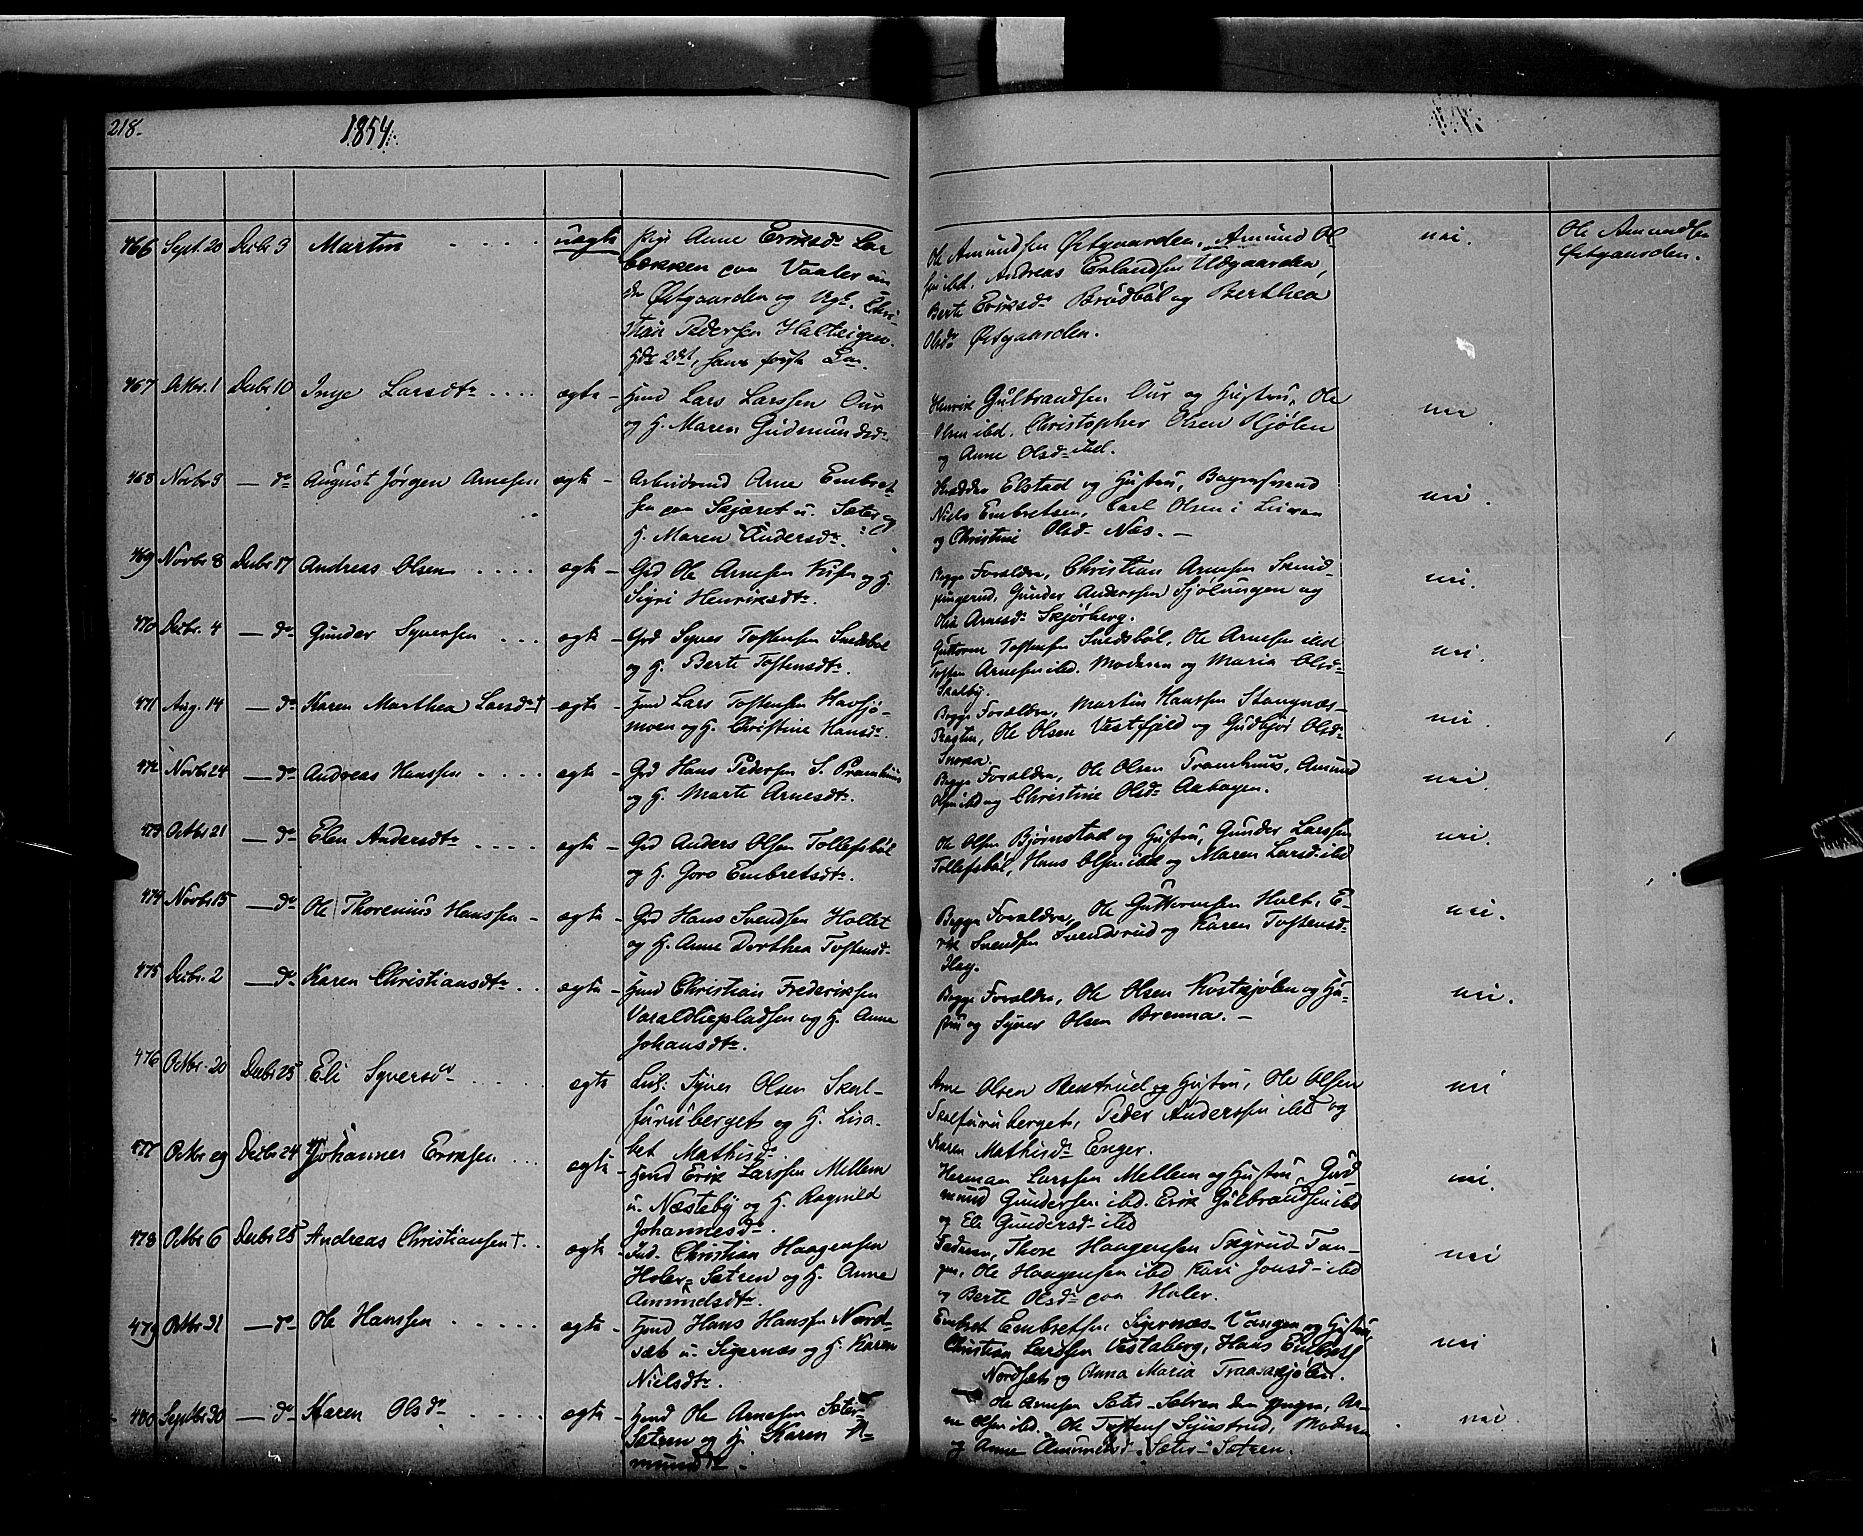 218.
1854.
466 Sept. 20 Decbr 3 Martin uægte Pige Anne Eriksdr Lar
bækken paa Vaaler un
der Østgaarden og Ugk. Chri-
stian Pedersen Halteigen.
Hds 2det, hans første Lm.
Ole Amundsen Østgaarden, Amund Ol
sen ibd. Andreas Erlandsen Udgaarden,
Berte Eriksdr Brødbøl og Berthea
Olsdr Østgaarden.
nei.
Ole Amundsen
Østgaarden.
467 Octbr. 1 Decbr 10 Inge Larsdtr ægte Hmd Lars Larssen Our
og H. Maren Gudmundsdr
Henrik Gulbrandsen Our og Hustru, Ole
Olsen ibd. Christopher Olsen Kjølen
og Anne Olsdr ibd.
nei.
468 Novbr 5 — do August Jørgen Arnesen ægte Arbeidsmd Arne Embret
sen paa Skjæret u. Sæter og
H. Maren Andersdr.
Skrædder Elstad og Hustru, Bagersvend
Niels Embretsen, Carl Olsen i
og Christine Olsdr Næs.
nei.
469 Novbr 8 Decbr 17 Andreas Olsen ægte Grd Ole Arnesen og H.
Sigri Henriksdtr.
Begge Forældre, Christian Arnesen
Gunder Anderssen Sjølungen og
Olia Arnesdr Skjørberg.
nei.
470 Decbr. 4 — do Gunder Syversen ægte Grd Syver Tostensen Snedsbøl
og H. Berte Tostensdtr.
Guttorm Tostensen Snedsbøl, Ole Arnesen ibd
Tosten Arnesen ibd. Moderen og Maria Olsdr
Skalby.
nei.
471 Aug. 14 — do Karen Marthea Larsdr † ægte Hmd Lars Tostensen Havsjø-
moen og H. Christine Hansdr.
Begge Forældre, Martin Hanssen Stangnæs-
Tragten, Ole Olsen Vestfjeld og Gudbjør Olsdr
Snorea.
nei.
472 Novbr 24 — do Andreas Hanssen ægte Grd Hans Pedersen S. Pramhuus
og H. Marte Arnesdtr.
Begge Forældre, Ole Olsen Pramhuus, Amund
Olsen ibd og Christine Olsdr Aabogen.
nei.
473 Octbr 21 — do Elen Andersdtr ægte Grd Anders Olsen Tollefsbøl
og H. Goro Embretsdtr.
Ole Olsen Bjørnstad og Hustru, Gunder Larssen
Tollefsbøl, Hans Olsen ibd og Maren Larsdr ibd
nei.
474 Novbr 15 — do Ole Thorenius Hanssen ægte Grd Hans Svendsen Holtet
og H. Anne Dorthea Tostensdr
Begge Forældre, Ole Guttormsen Holt, E-
rik Svendsen Svenderud og Karen Tostensdr
Flay.
nei.
475 Decbr. 2 — do Karen Christiansdtr ægte Hmd Christian Frederiksen
Varaldliepladsen og H. Anne
Johansdtr.
Begge Forældre, Ole Olsen Kostkjølen og Hu-
stru og Syver Olsen Brenna.
nei.
476 Octbr. 20 Decbr 25 Eli Syversdr ægte Syver Olsen Skal-
furuberget og H. Lisa-
bet Mathisdr.
Arne Olsen Rustrud og Hustru, Ole Olsen
Skalfuruberget, Peder Anderssen ibd og
Karen Mathisdr Enger.
nei
477 Octbr 29 Decbr 24 Johannes Eriksen ægte Hmd Erik Larssen Mellem
u. Næsteby og H. Ragnild
Johannesdr.
Herman Larssen Mellem og Hustru, Gud
mund Gundersen ibd. Erik Gulbrandsen ibd
og Eli Gundersdr ibd
nei.
478 Octbr 6 Decbr 25 Andreas Christiansen † ægte Ind. Christian Haagensen
Holer-Sætren og H. Anne
Amundsdtr.
Faderen, Thore Haagensen Tan-
gen, Ole Haagensen ibd Kari Jonsdr ibd
og Berte Olsdr paa Holer.
nei
479 Octbr 31 — do Ole Hanssen ægte Hmd Hans Hanssen Nord
sæt u. Sigernæs og H. Karen
Nielsdtr.
Embret Embretsen Sigernæs-Vangen og Hustru,
Christian Larssen Vestaberg, Hans Embrets
Nordsæt og Anna Maria Traasækjølen
nei
480 Septbr 30 — do Karen Olsdr ægte Hmd Ole Arnesen Sæter
Sætren og H. Karen A-
mundsdtr
Ole Arnesen Sæter-Sætren den yngre, Ar-
ne Olsen ibd. Ole Tostens Sjustrud, Moderen
og Anne Amundsdr Sæter-Sætren.
nei.